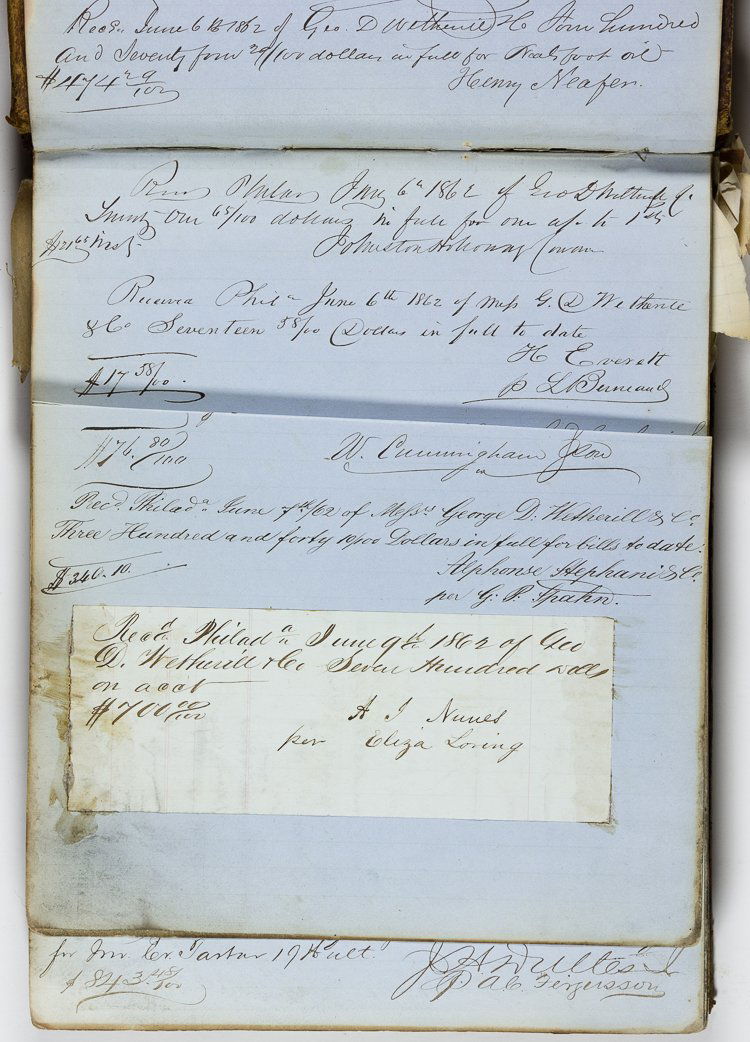 Recd. June 6th 1862 of Geo. D Wetherill & Co Four hundred
and Seventy four 29/100 dollars in full for Neatsfoot oil
$474 29/100 Henry Neafer.
Philada 6th 1862 of Geo D Wetherill &
Twenty One 65/100 dollars in full for one
$21 65 Johnston Holloway Cowan
Received Phila June 6th 1862 of Mess G. D Wetherill
& Co Seventeen 58/100 Dollars in full to date
H Everett
$17 58/100. p L Berneaud
$76. 80/100 W. Cunningham & Son
Recd. Philada June 7th/62 of Messrs George D. Wetherill & Co
Three Hundred and forty 10/100 Dollars in full for bills to date.
$340.10. Alphonse Stephani & Co.
per G. P. Spahn.
Recd Philada June 9th 1862 of Geo
D. Wetherill & Co Seven Hundred dolls
on acct
$700 00/100 A J Nunes
per Eliza Loring
for Cr. Tartar 17 ult.
$843. 48/100
p A C Fergusson